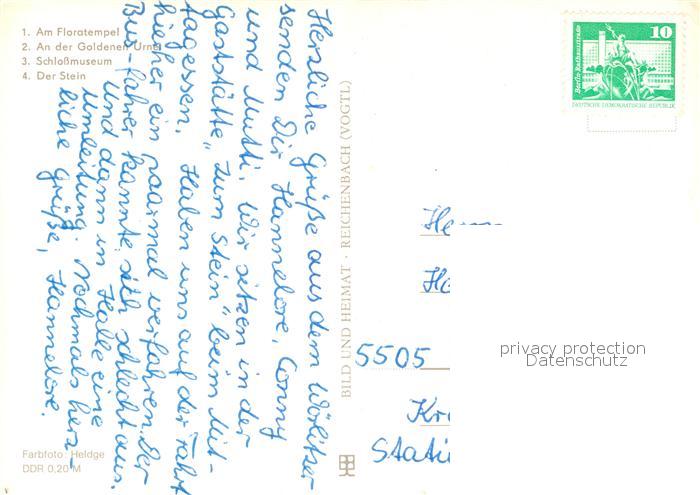 1. Am Floratempel
2. An der Goldenen Urne
3. Schloßmuseum
4. Der Stein
Herzliche Grüße aus dem Wörlitzer
senden Dir Hannelore, Conny
und Mutti. Wir sitzen in der
Gaststätte „Zum Stein" beim Mit-
tagessen. Haben uns auf der Fahrt
hieher ein paarmal verfahren. Der
Bus-fahrer kannte sich schlecht aus.
Und dann in Halle eine
Umleitung. Nochmals herz-
liche Grüße, Hannelore.
Farbfoto: Heldge
DDR 0,20 M
BILD UND HEIMAT · REICHENBACH (VOGTL)
10
Berlin-Rathausstraße
DEUTSCHE DEMOKRATISCHE REPUBLIK
5505
privacy protection
Datenschutz